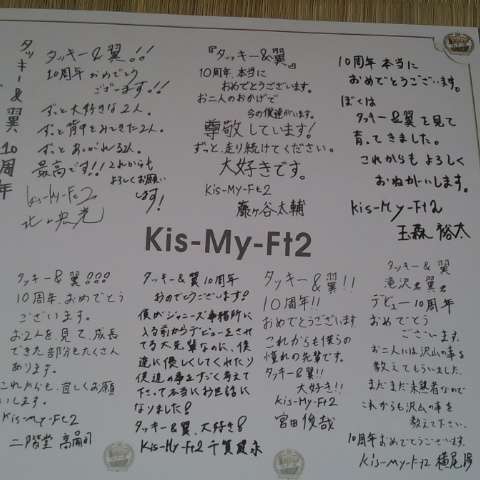 タッキー&翼 10周年
タッキー&翼!!
10周年おめでとう
ございます!!
ずっと大好きな2人。
ずっと背中をみてきた2人。
ずっとあこがれる2人。
最高です!!これからも
よろしくお願い
します!
Kis-My-Ft2
北山宏光
『タッキー&翼』
10周年、本当に
おめでとうございます。
お二人のおかげで
今の僕達がいます。
尊敬しています!
ずっと、走り続けてください。
大好きです。
Kis-My-Ft2
藤ヶ谷太輔
10周年本当に
おめでとうございます。
ぼくは
タッキー&翼を見て
育ってきました。
これからもよろしく
おねがいします。
Kis-My-Ft2
玉森裕太
Kis-My-Ft2
タッキー&翼!!!
10周年、おめでとう
ございます。
お2人を見て、成長
できた部分もたくさん
あります。
これからも、宜しくお願
いします。
Kis-My-Ft2
二階堂高嗣
タッキー&翼10周年
おめでとうございます!
僕がジャニーズ事務所に
入る前からデビューをさせ
てる大先輩なのに、僕
達に優しくしてくれたり
僕達の事をすごく考えて
下さって本当にお世話に
なりました!
タッキー&翼、大好き!
Kis-My-Ft2 千賀健永
タッキー&翼!!
10周年!!
おめでとうございます
これからも僕らの
憧れの先輩です。
タッキー&翼!!
大好き!!
Kis-My-Ft2
宮田俊哉
タッキー&翼
滝沢君翼君
デビュー10周年
おめでとう
ございます。
お二人には沢山の事を
教えてもらいました。
まだまだ未熟者なので
これからも沢山の事を
教えて下さい。
10周年おめでとうございます。
Kis-My-Ft2 横尾渉